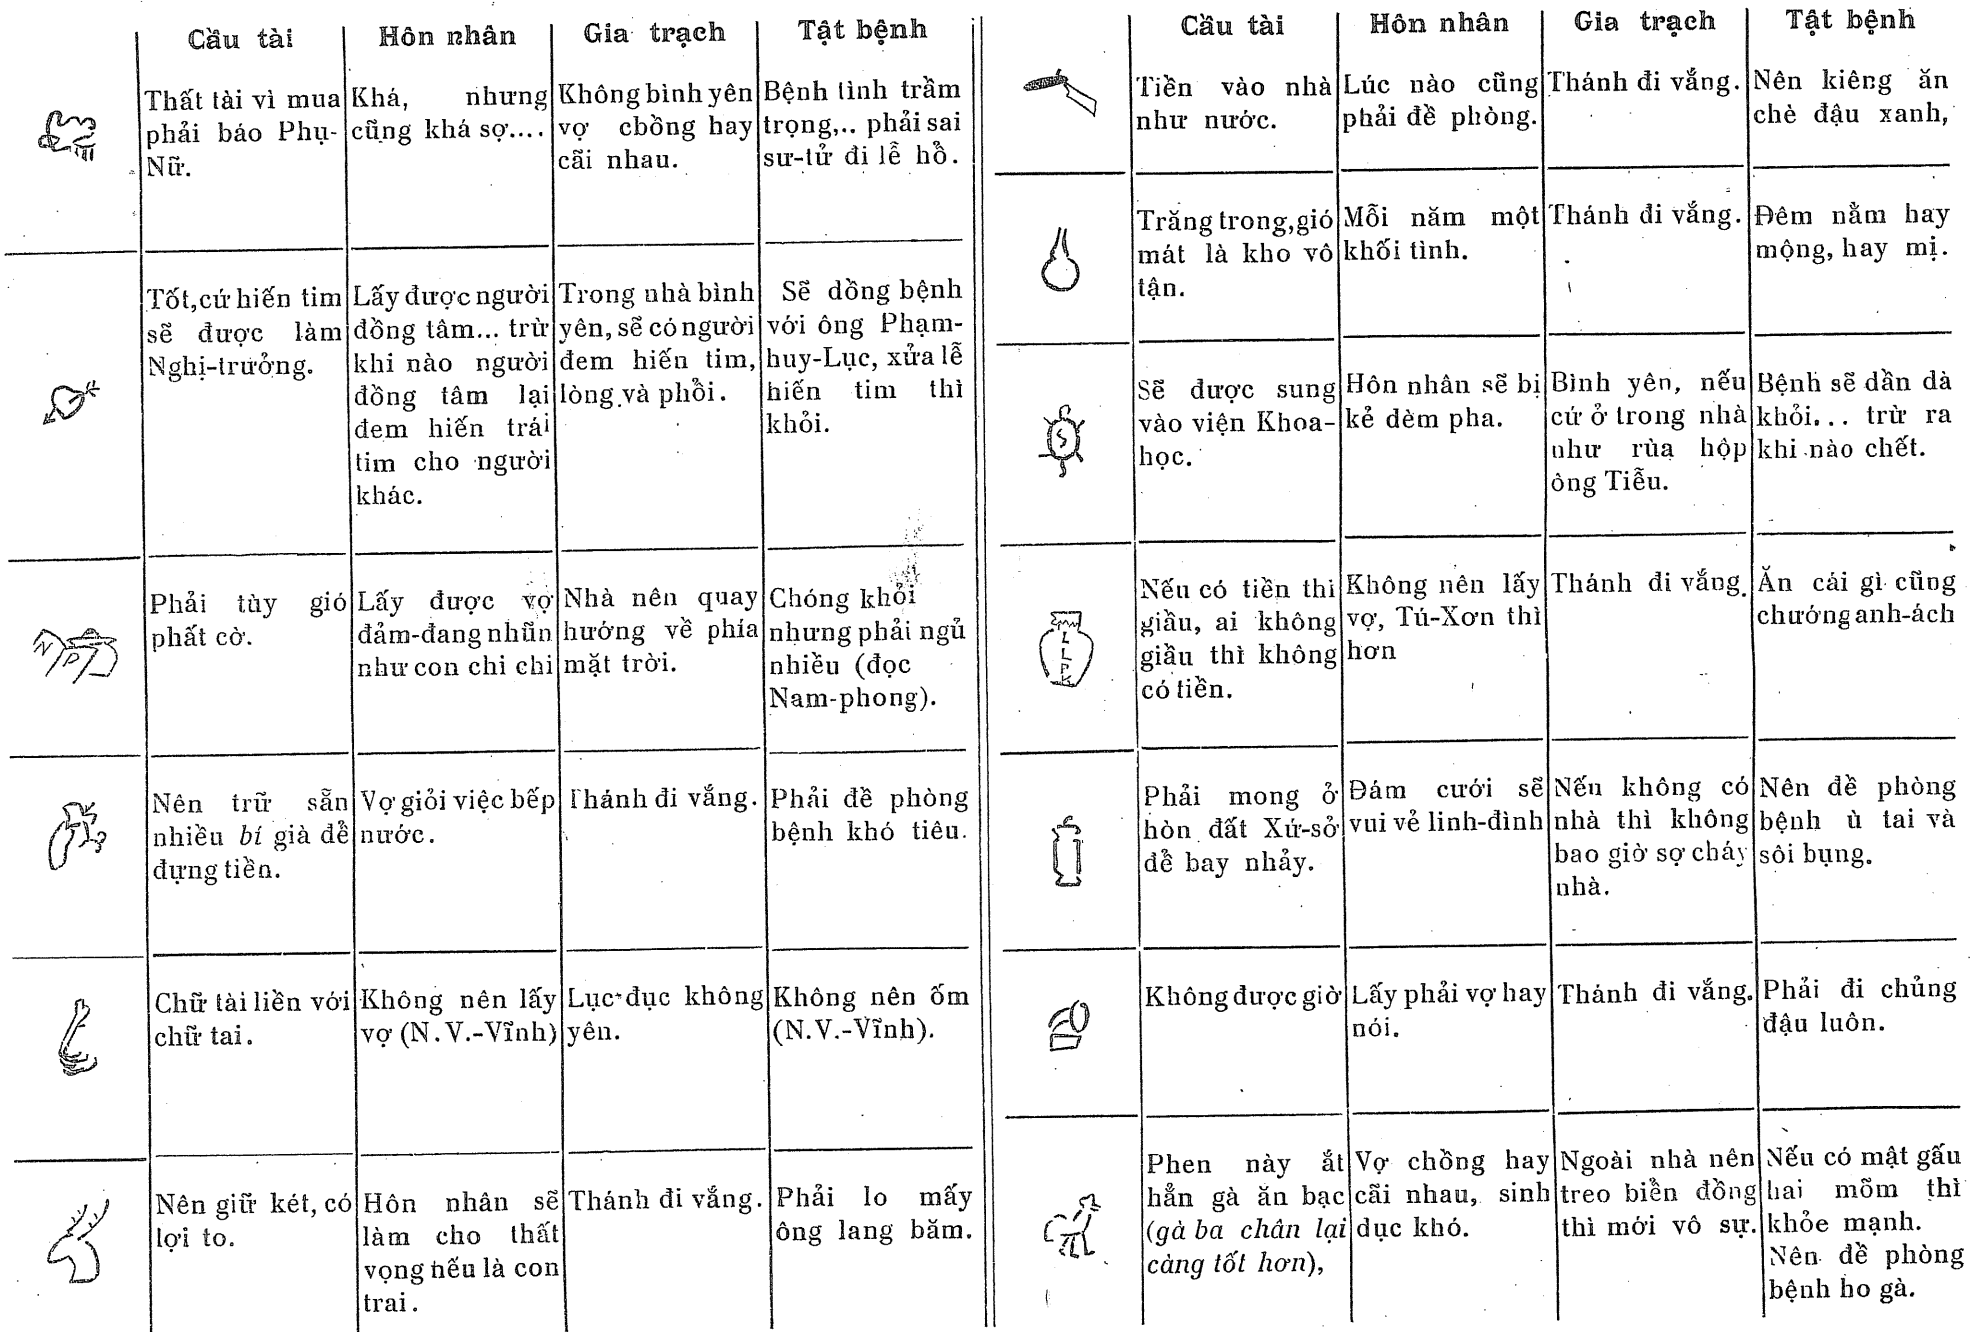 Cầu tài
Hôn nhân
Gia trạch
Tật bệnh
Thất tài vì mua
phải báo Phụ-
Nữ.
Khá, nhưng
cũng khá sợ....
Không bình yên
vợ cbồng hay
cãi nhau.
Bệnh tình trầm
trọng,.. phải sai
sư-tử đi lễ hồ.
Tốt,cứ hiến tim
sẽ được làm
Nghị-trưởng.
Lấy được người
đồng tâm... trừ
khi nào người
đồng tâm lại
đem hiến trái
tim cho người
khác.
Trong nhà bình
yên, sẽ có người
đem hiến tim,
lòng và phồi.
Sẽ dồng bệnh
với ông Phạm-
huy-Lục, xửa lễ
hiến tim thì
khỏi.
N P
Phải tùy gió
phất cờ.
Lấy được vợ
đảm-đang nhũn
như con chi chi
Nhà nên quay
hướng về phía
mặt trời.
Chóng khỏi
nhưng phải ngủ
nhiều (đọc
Nam-phong).
Nên trữ sẵn
nhiều bí già để
đựng tiền.
Vợ giỏi việc bếp
nước.
Thánh đi vắng.
Phải đề phòng
bệnh khó tiêu.
Chữ tài liền với
chữ tai.
Không nên lấy
vợ (N.V.-Vĩnh)
Lục đục không
yên.
Không nên ốm
(N.V.-Vĩnh).
Nên giữ két, có
lợi to.
Hôn nhân sẽ
làm cho thất
vọng nếu là con
trai.
Thánh đi vắng.
Phải lo mấy
ông lang băm.
Cầu tài
Hôn nhân
Gia trạch
Tật bệnh
Tiền vào nhà
như nước.
Lúc nào cũng
phải đề phòng.
Thánh đi vắng.
Nên kiêng ăn
chè đậu xanh,
Trăng trong,gió
mát là kho vô
tận.
Mỗi năm một
khối tình.
Thánh đi vắng.
Đêm nằm hay
mộng, hay mị.
S
Sẽ được sung
vào viện Khoa-
học.
Hôn nhân sẽ bị
kẻ dèm pha.
Bình yên, nếu
cứ ở trong nhà
như rùa hộp
ông Tiễu.
Bệnh sẽ dần dà
khỏi... trừ ra
khi nào chết.
L
L
P
K
Nếu có tiền thi
giầu, ai không
giầu thì không
có tiền.
Không nên lấy
vợ, Tú-Xơn thì
hơn
Thánh đi vắng.
Ăn cái gì cũng
chướng anh-ách
Phải mong ở
hòn đất Xứ-sở
để bay nhảy.
Đám cưới sẽ
vui vẻ linh-đình
Nếu không có
nhà thì không
bao giờ sợ cháy
nhà.
Nên đề phòng
bệnh ù tai và
sôi bụng.
Không được giờ
Lấy phải vợ hay
nói.
Thánh đi vắng.
Phải đi chủng
đậu luôn.
Phen này ắt
hẳn gà ăn bạc
(gà ba chân lại
càng tốt hơn),
Vợ chồng hay
cãi nhau, sinh
dục khó.
Ngoài nhà nên
treo biển đồng
thì mới vô sự.
Nếu có mật gấu
hai mõm thì
khỏe mạnh.
Nên đề phòng
bệnh ho gà.